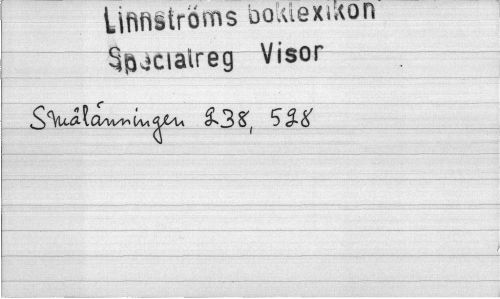 Linnströms boklexikon
Specialreg Visor
Smålänningen 238, 528